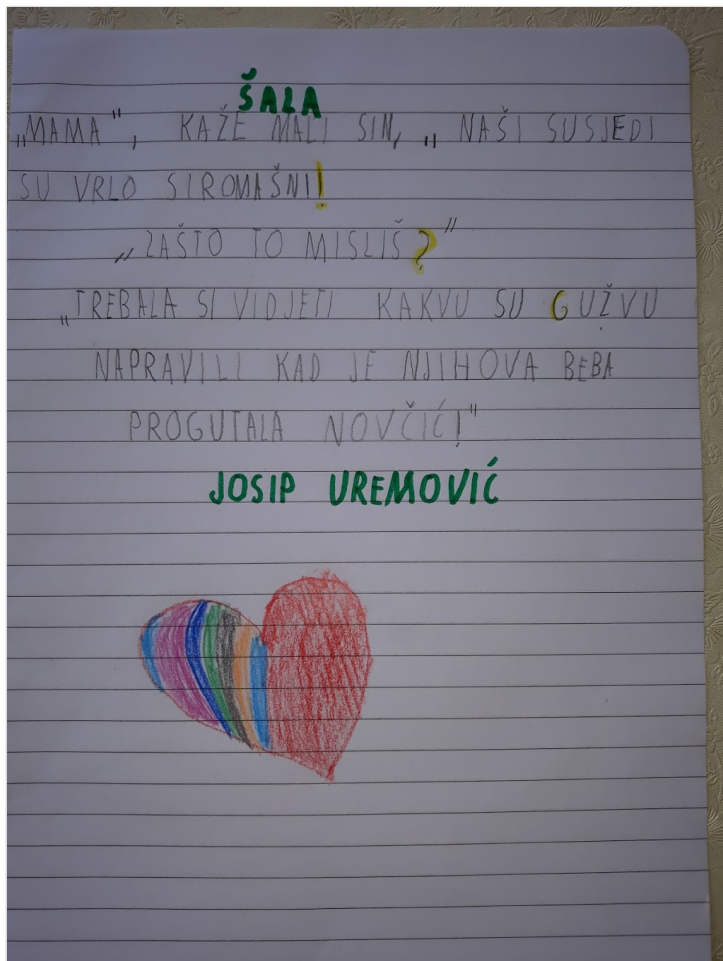 ŠALA
„MAMA", KAŽE MALI SIN, „NAŠI SUSJEDI
SU VRLO SIROMAŠNI!
„ZAŠTO TO MISLIŠ?"
„TREBALA SI VIDJETI KAKVU SU GUŽVU
NAPRAVILI KAD JE NJIHOVA BEBA
PROGUTALA NOVČIĆ!"
JOSIP UREMOVIĆ